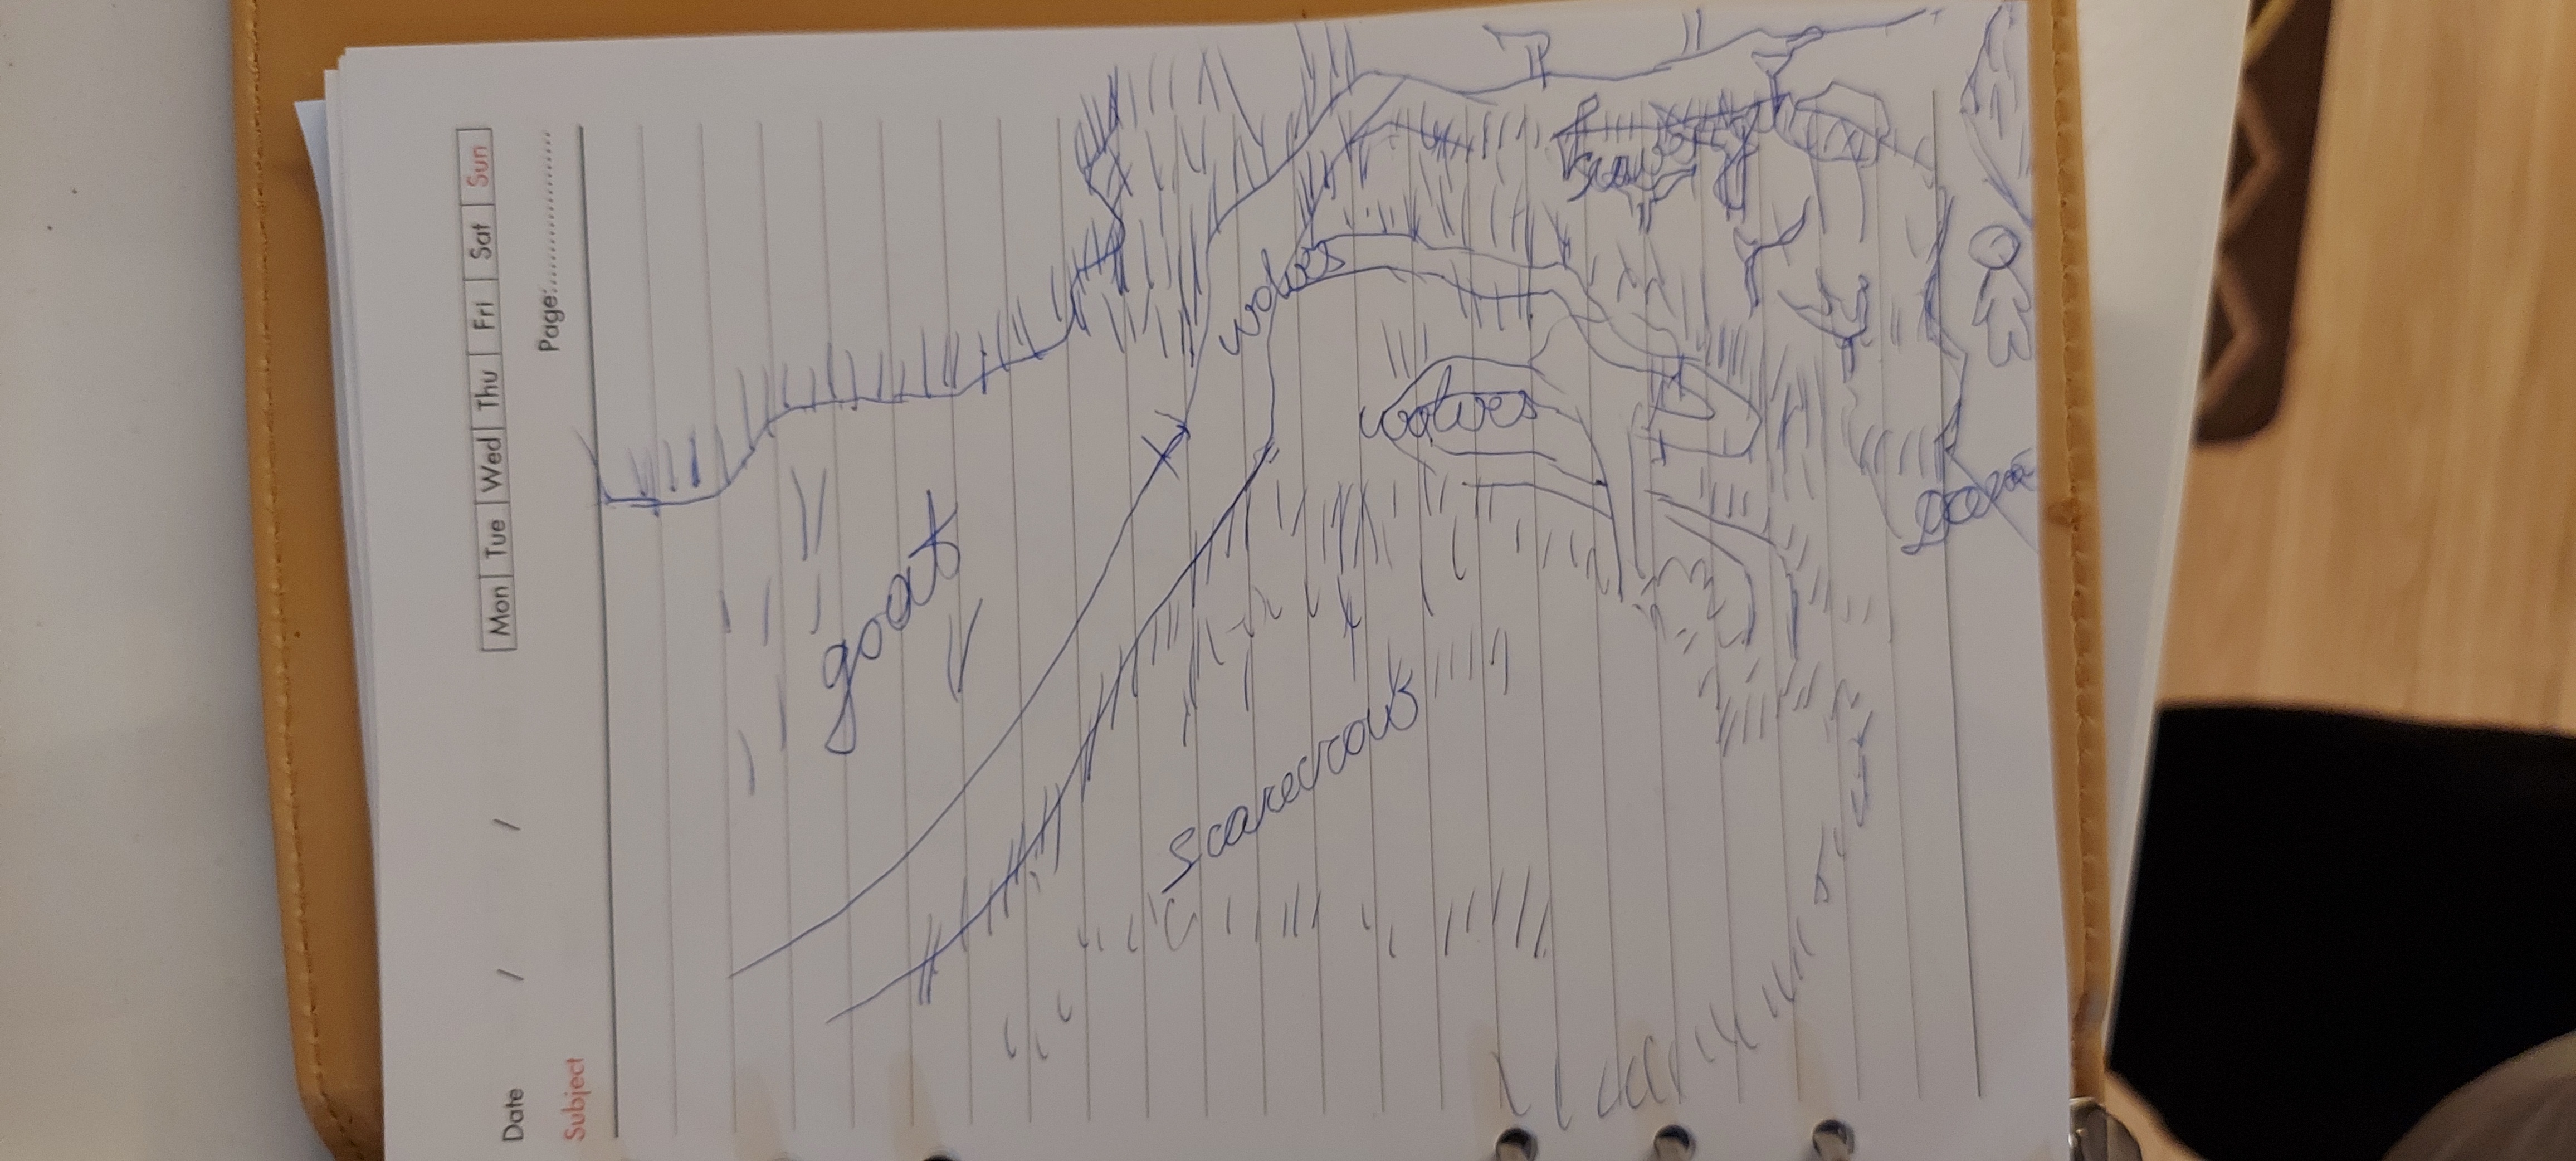 Date / /
Mon Tue Wed Thu Fri Sat Sun
Page:
Subject
goat
scarecrow
wolves
wolves